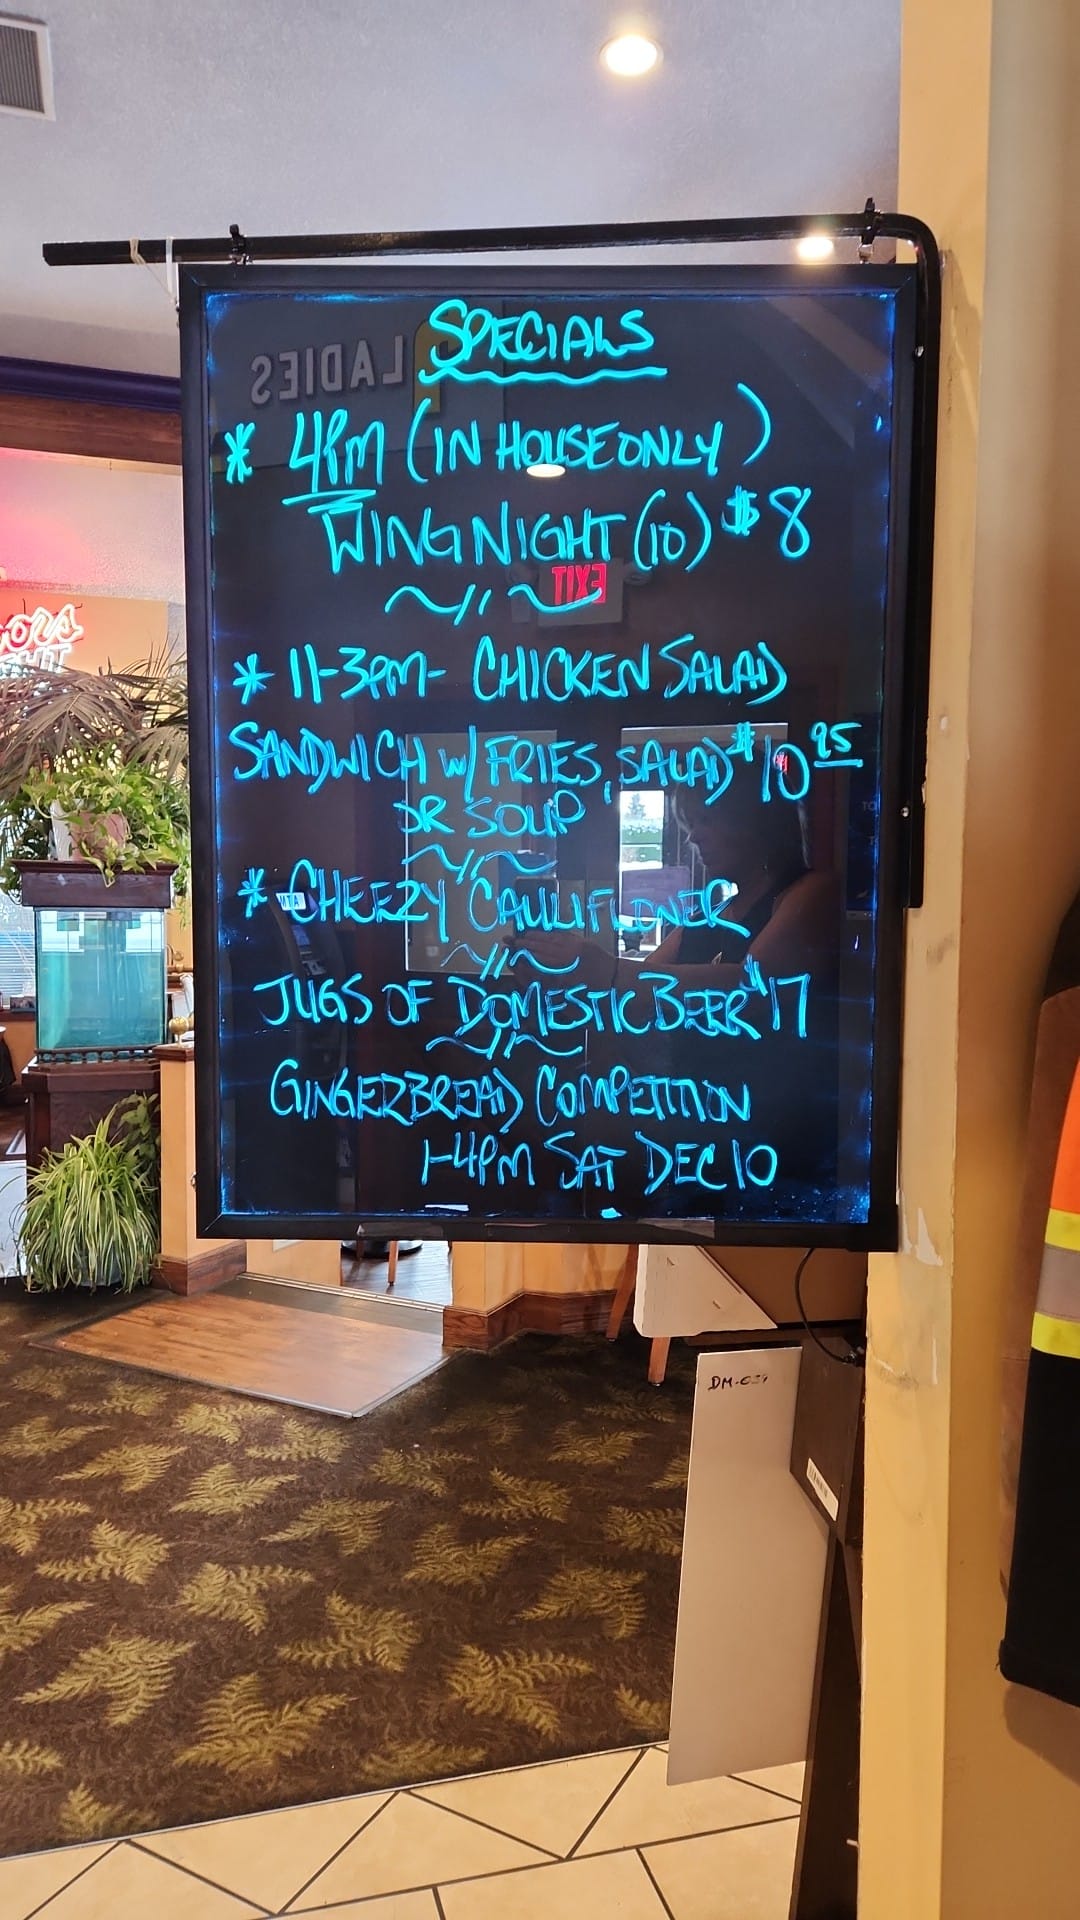 SPECIALS
* 4PM (IN HOUSE ONLY)
WING NIGHT (10) $8
* 11-3PM- CHICKEN SALAD
SANDWICH W/ FRIES, SALAD $10.95
OR SOUP
* CHEEZY CAULIFLOWER
JUGS OF DOMESTIC BEER $17
GINGERBREAD COMPETITION
1-4PM SAT DEC 10
LADIES
EXIT
DM-039